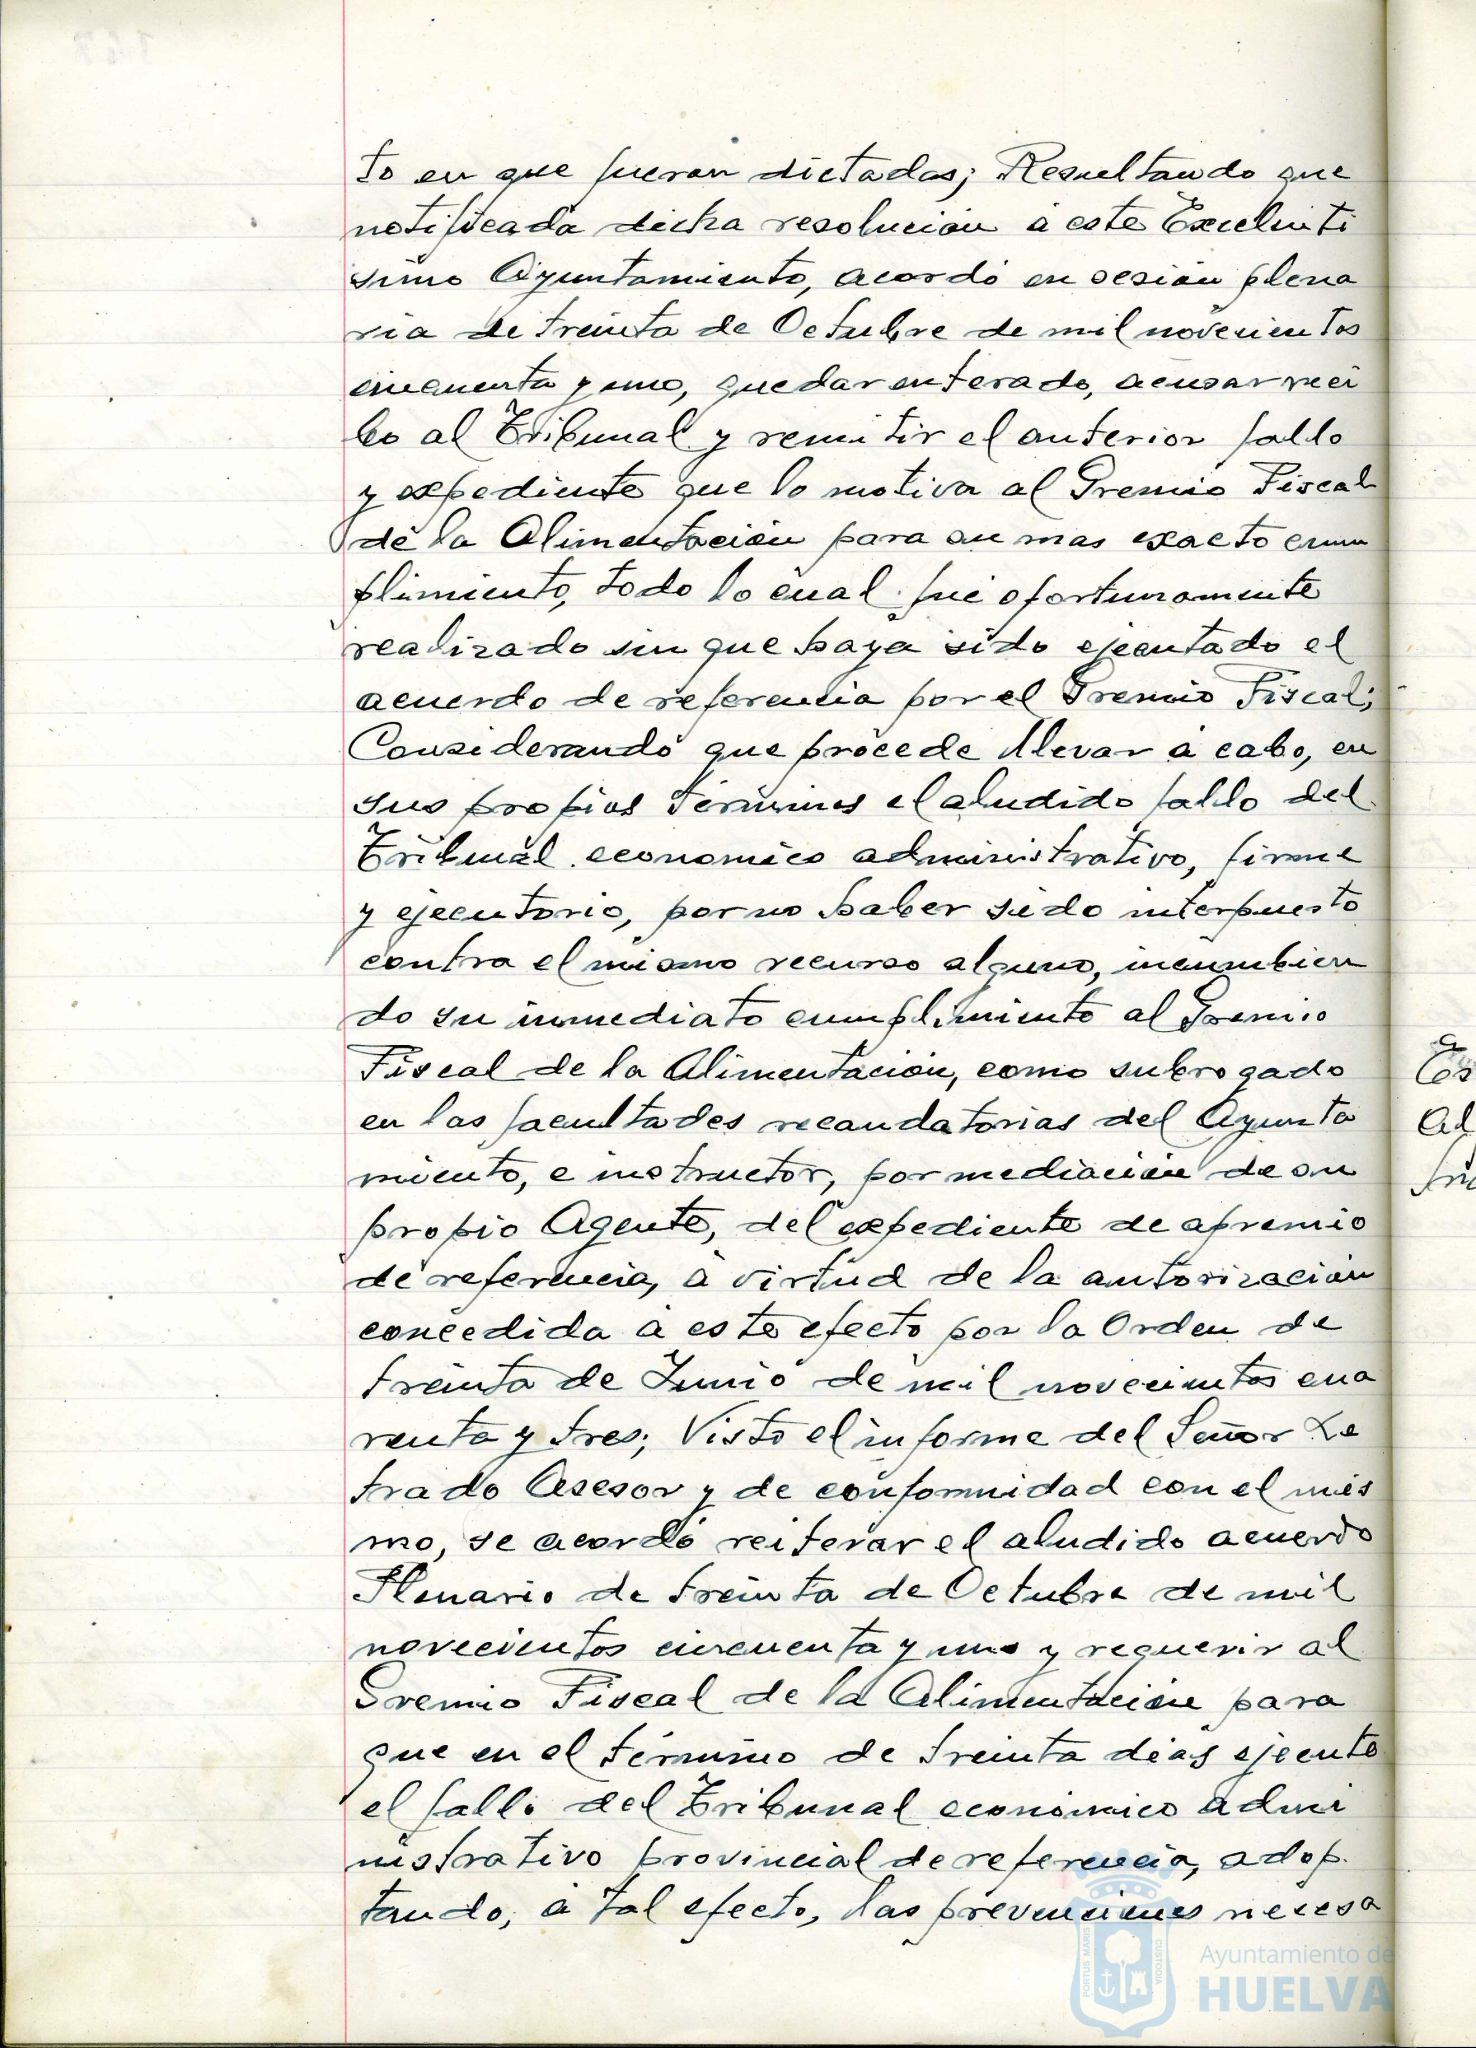 to en que fueron dictadas; Resultando que
notificada dicha resolución á este Excelenti
simo Ayuntamiento, acordó en sesión plena
ria de treinta de Octubre de mil novecientos
cincuenta y uno, quedar enterado, acusar reci
bo al Tribunal y remitir el anterior fallo
y expediente que lo motiva al Gremio Fiscal
de la Alimentación para su mas exacto cum
plimiento, todo lo cual fué oportunamente
realizado sin que haya sido ejecutado el
acuerdo de referencia por el Gremio Fiscal;
Considerando que procede llevar á cabo, en
sus propios términos el aludido fallo del
Tribunal economico administrativo, firme
y ejecutorio, por no haber sido interpuesto
contra el mismo recurso alguno, incumbien
do su inmediato cumplimiento al Gremio
Fiscal de la Alimentación, como subrogado
en las facultades recaudatorias del Ayunta
miento, e instructor, por mediación de su
propio Agente, del expediente de apremio
de referencia, á virtud de la autorización
concedida á este efecto por la Orden de
treinta de Junio de mil novecientos cua
renta y tres; Visto el informe del Señor Le
trado Asesor y de conformidad con el mis
mo, se acordó reiterar el aludido acuerdo
Plenario de treinta de Octubre de mil
novecientos cincuenta y uno y requerir al
Gremio Fiscal de la Alimentación para
que en el término de treinta dias ejecute
el fallo del Tribunal económico admi
nistrativo provincial de referencia, adop.
tando, á tal efecto, las prevenciones necesa
Ayuntamiento de
HUELVA
PORTUS MARIS
CUSTODIA